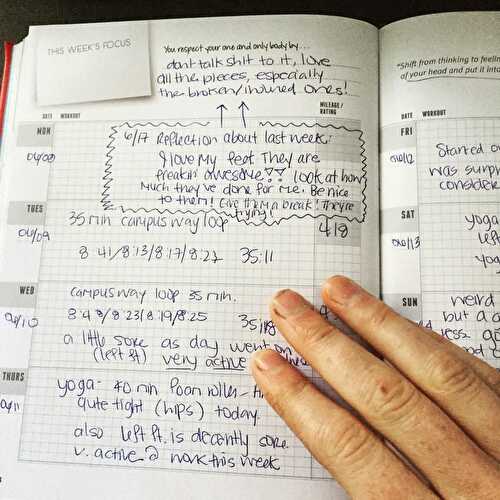 THIS WEEK'S FOCUS
You respect your one and only body by...
don't talk shit to it, love
all the pieces, especially
the broken/injured ones!
DATE WORKOUT MILEAGE / RATING
MON
06/08
6/17 Reflection about last week:
I love my feet They are
freakin' awesome!! Look at how
much they've done for me. Be nice
to them! Give them a break! They're
trying!
TUES
06/09
35 min campus way loop
4/8
8:41/8:13/8:17/8:27 35:11
WED
06/10
campus way loop 35 min.
8:48/8:23/8:19/8:25 35:18
a little sore as day went on
(left ft) very active
THURS
06/11
yoga- 40 min foam roller-
qute tight (hips) today.
also left ft. is decently sore
v. active @ work this week
"Shift from thinking to feelin
of your head and put it into
DATE WORKOUT
FRI
06/12
Started o
was surp
conside
SAT
06/13
yoga
left
yog
SUN
weird
but a
less